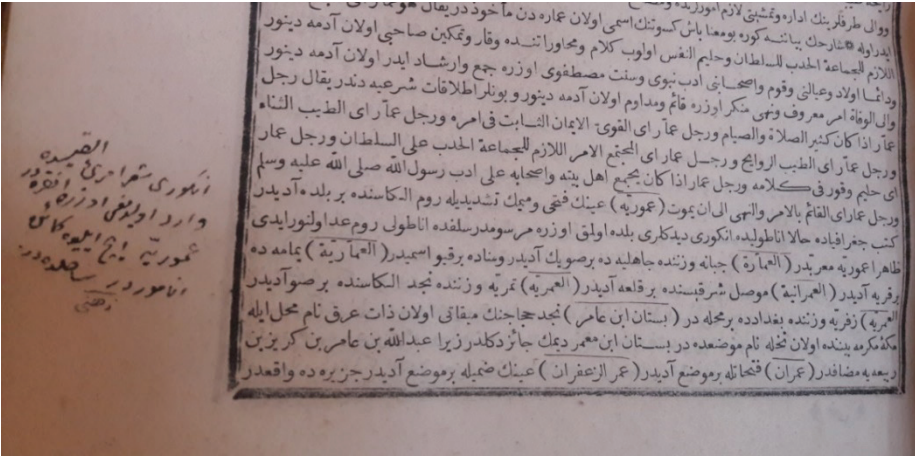 ووالى طرفلرينك اداره وتمشيتى لازم امورزيده
ايدر اوله شارحك بياننه كوره بومعنا باش كسوتنك اسمى اولان عماره دن مأخوذدر يقال هو عمار
اللازم للجماعة الحدب للسلطان وحليم النفس اولوب كلام ومحاوراتنده وقار وتمكين صاحبى اولان آدمه دينور
ودائما اولاد وعيالنى وقوم واصحابنى ادب نبوى وسنت مصطفوى اوزره جمع وارشاد ايدر اولان آدمه دينور
والى الوفاة امر معروف ونهى منكر اوزره قائم ومداوم اولان آدمه دينور وبونلر اطلاقات شرعيه دندر يقال رجل
عمار اذا كان كثير الصلاة والصيام ورجل عمار اى القوى الايمان الثابت فى امره ورجل عمار اى الطيب الثناء
ورجل عمار اى الطيب الروايح ورجل عمار اى المجتمع الامر اللازم للجماعة الحدب على السلطان ورجل عمار
اى حليم وقور فى كلامه ورجل عمار اذا كان يجمع اهل بيته واصحابه على ادب رسول الله صلى الله عليه وسلم
ورجل عمار اى القائم بالامر والنهى الى ان يموت (عموريه) عينك فتحى وميمك تشديديله روم الكاسنده بر بلده آديدر
كتب جغرافياده حالا اناطوليده انكورى ديدكلرى بلده اولمق اوزره مرسومدر سلفده اناطولى روم عد اولنور ايدى
ظاهرا عموريه معربيدر (العمارة) جبانه وزننده جاهليه ده بر صويك آديدر ومناده بر قيو اسميدر (العمارية) يمامه ده
بر قريه آديدر (العمرانية) موصل شرقيسنده بر قلعه آديدر (العمرية) تمريه وزننده نجد الكاسنده بر صو آديدر
(العمرية) زفريه وزننده بغدادده بر محله در (بستان ابن عامر) نجد حجاجنك ميقاتى اولان ذات عرق نام محل ايله
مكۀ مكرمه بيننده اولان نخله نام موضعده در بستان ابن معمر ديمك جائز دكلدر زيرا عبدالله بن عامر بن كريز بن
ربيعه يه مضافدر (عمران) فتحاتله بر موضع آديدر (عمر الزعفران) عينك ضميله بر موضع آديدر جزيره ده واقعدر
انكورى شعر امرئ القيسده
وارد اولديغى اوزره انقره در
عموريه
انامور در ساحلده در